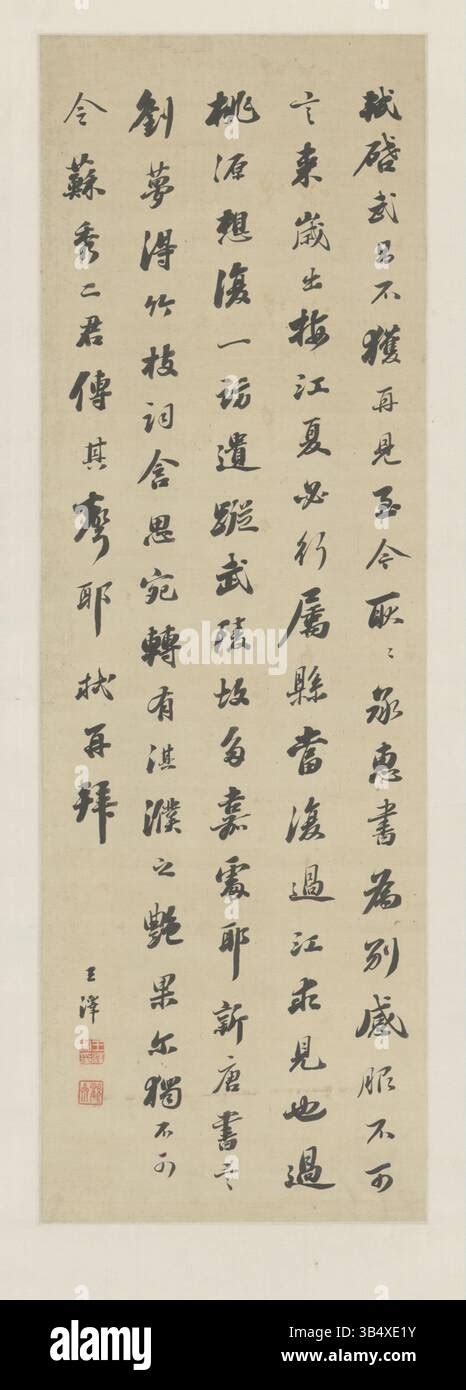 軾啓武昌不獲再見至今耿〻承惠書為別感服不可
言來歲出按江夏必行屬縣當復過江求見也過
桃源想復一訪遺蹤武陵故多嘉處耶新唐書言
劉夢得竹枝詞含思宛轉有淇濮之艷果尔獨不可
令蘇秀二君傳其聲耶軾再拜
王澤
alamy
Image ID: 3B4XE1Y
www.alamy.com